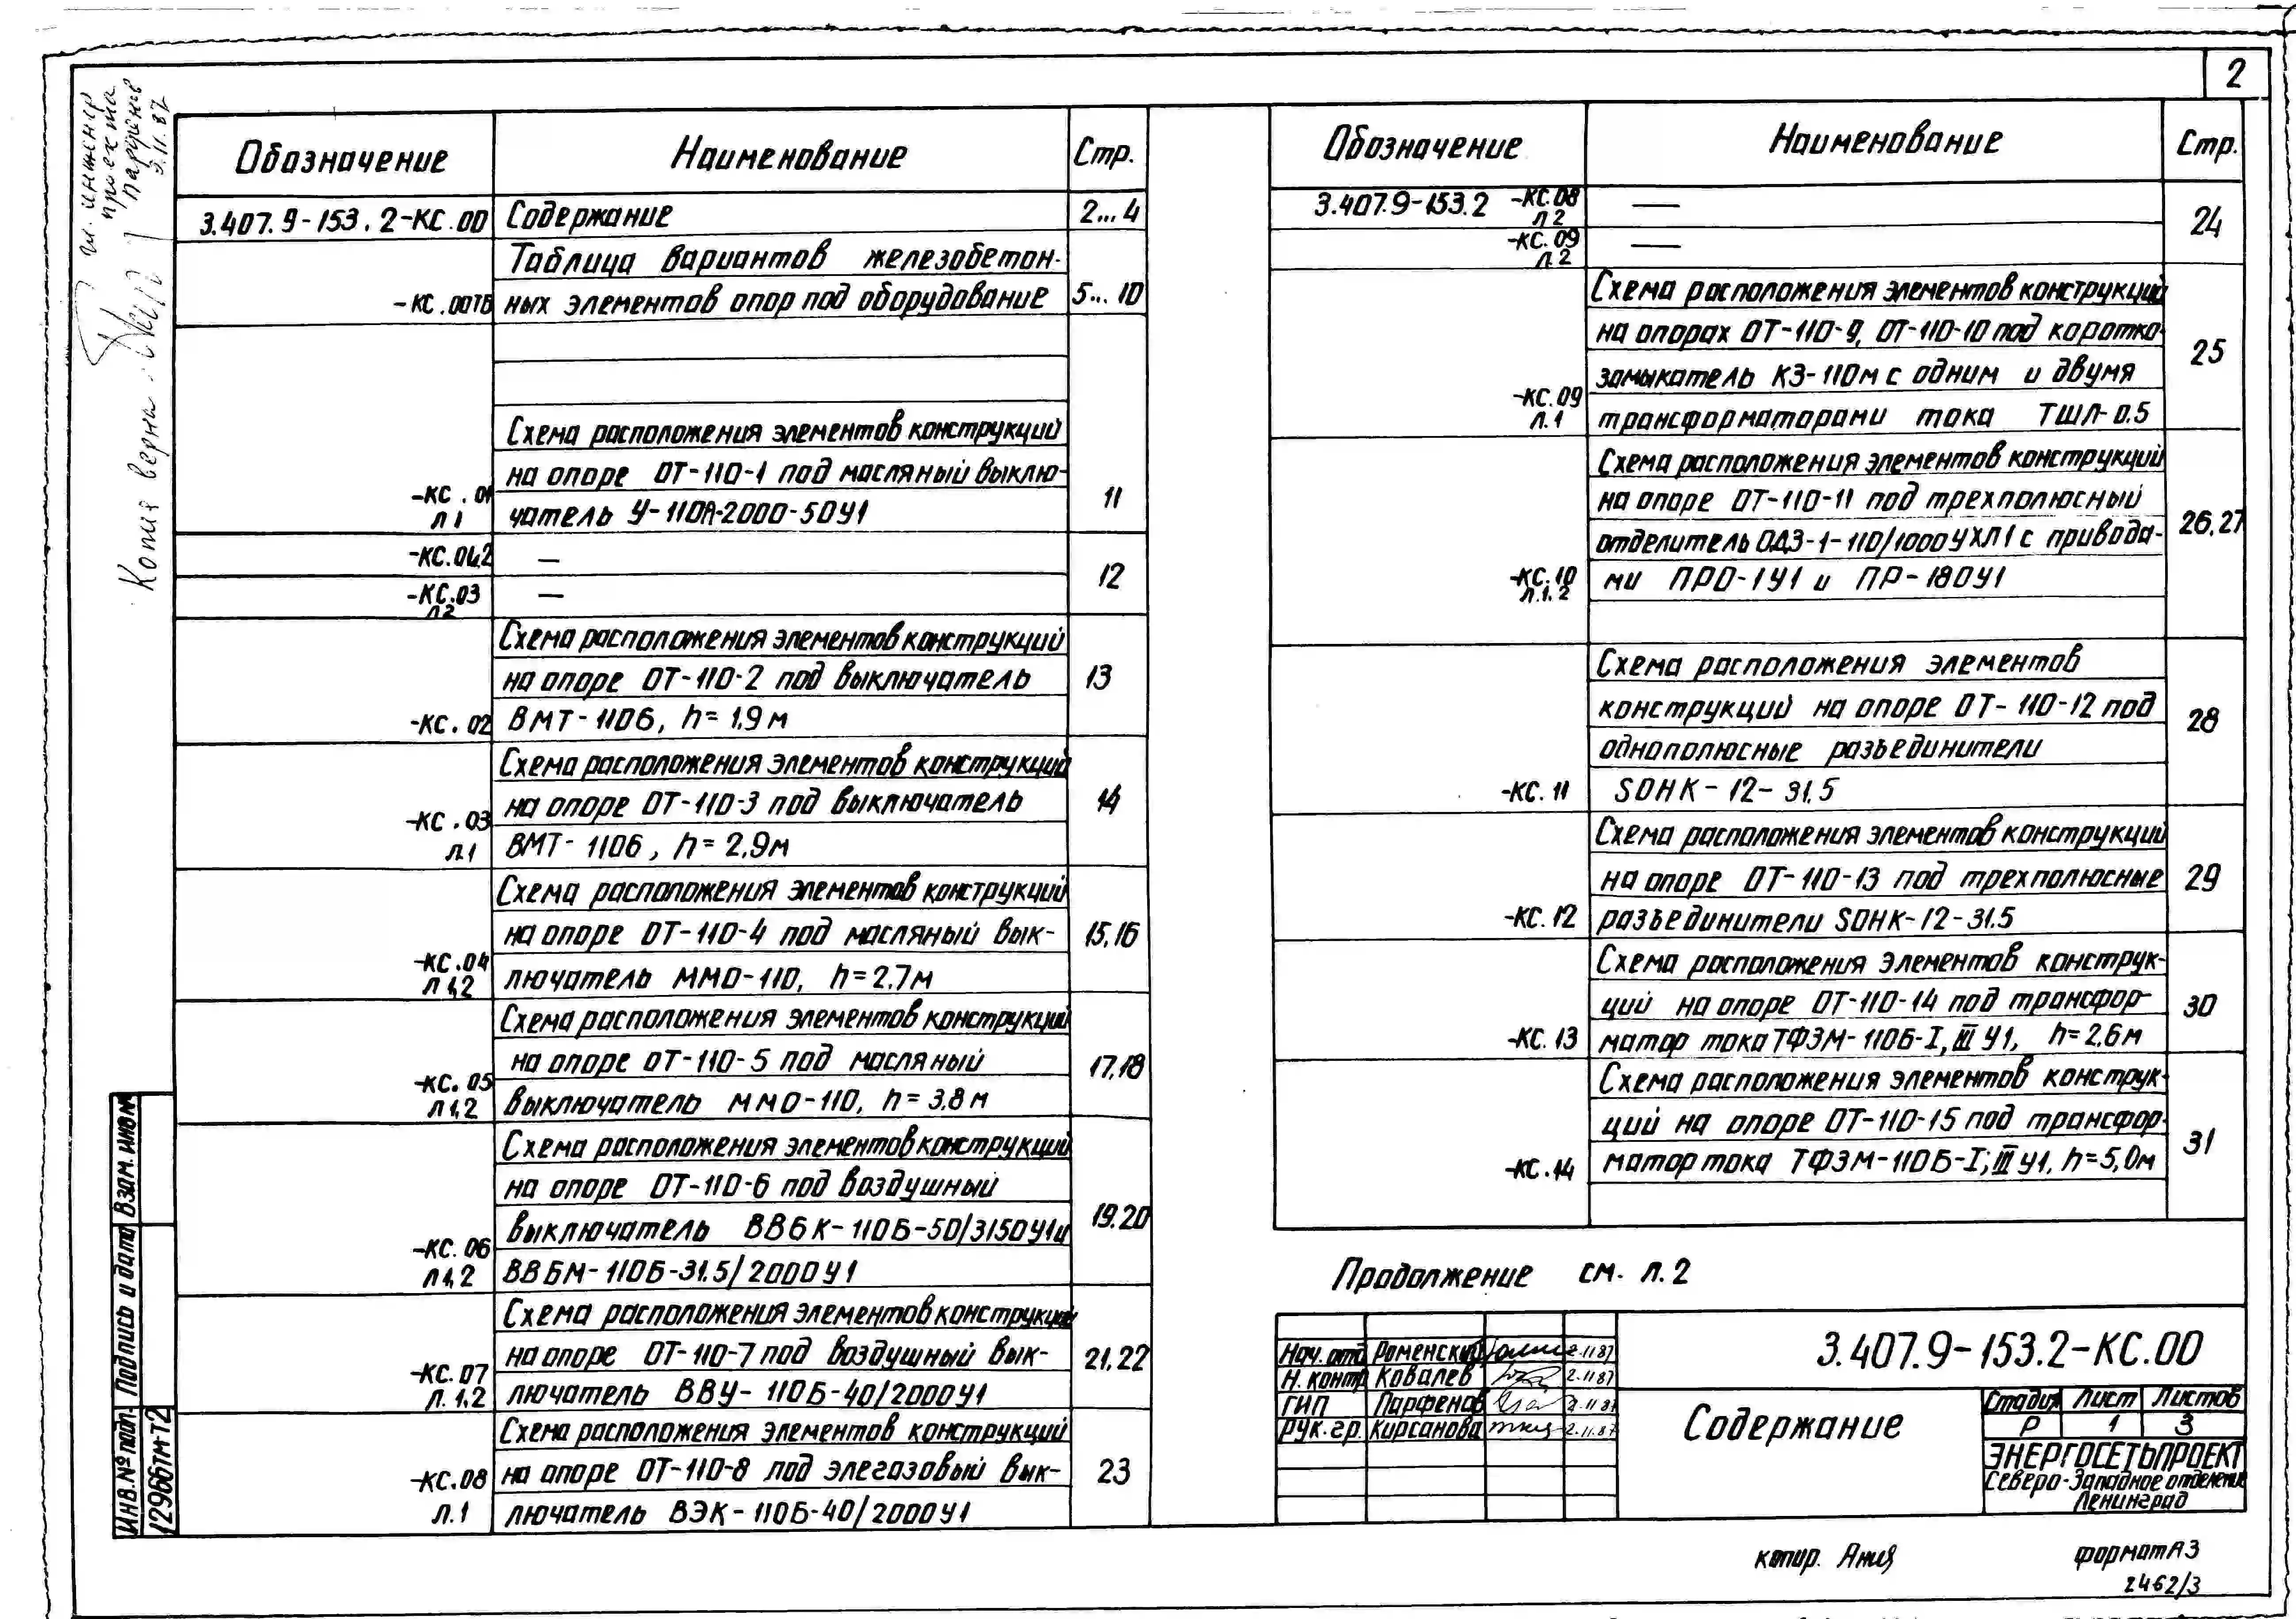 2
Обозначение
Наименование
Стр.
3.407.9-153.2-КС.00
Содержание
2...4
Таблица вариантов железобетон-
-КС.00ТБ
ных элементов опор под оборудование
5...10
Схема расположения элементов конструкций
на опоре ОТ-110-1 под масляный выклю-
-КС.01
Л1
чатель У-110А-2000-50У1
11
-КС.01.2
—
-КС.03
Л2
—
12
Схема расположения элементов конструкций
на опоре ОТ-110-2 под выключатель
-КС.02
ВМТ-110б, h=1.9м
13
Схема расположения элементов конструкций
на опоре ОТ-110-3 под выключатель
-КС.03
Л.1
ВМТ-110б, h=2,9м
14
Схема расположения элементов конструкций
на опоре ОТ-110-4 под масляный вык-
-КС.04
Л 1,2
лючатель ММО-110, h=2.7м
15,16
Схема расположения элементов конструкций
на опоре ОТ-110-5 под масляный
-КС.05
Л 1,2
выключатель ММО-110, h=3,8м
17,18
Схема расположения элементов конструкций
на опоре ОТ-110-6 под воздушный
выключатель ВВБК-110Б-50/3150У1и
-КС.06
Л 1,2
ВВБМ-110Б-31.5/2000У1
19.20
Схема расположения элементов конструкций
на опоре ОТ-110-7 под воздушный вык-
-КС.07
Л.1,2
лючатель ВВУ-110Б-40/2000У1
21,22
Схема расположения элементов конструкций
на опоре ОТ-110-8 под элегазовый вык-
-КС.08
Л.1
лючатель ВЭК-110Б-40/2000У1
23
Обозначение
Наименование
Стр.
3.407.9-153.2 -КС.08
Л2
—
-КС.09
Л.2
—
24
Схема расположения элементов конструкций
на опорах ОТ-110-9, ОТ-110-10 под коротко-
замыкатель КЗ-110м с одним и двумя
-КС.09
Л.1
трансформаторами тока ТШЛ-0.5
25
Схема расположения элементов конструкций
на опоре ОТ-110-11 под трехполюсный
отделитель ОДЗ-1-110/1000УХЛ1 с привода-
-КС.10
Л.1.2
ми ПРО-1У1 и ПР-180У1
26,27
Схема расположения элементов
конструкций на опоре ОТ-110-12 под
однополюсные разъединители
-КС.11
SOHK-12-31.5
28
Схема расположения элементов конструкций
на опоре ОТ-110-13 под трехполюсные
-КС.12
разъединители SOHK-12-31.5
29
Схема расположения элементов конструк-
ций на опоре ОТ-110-14 под трансфор-
-КС.13
матор тока ТФЗМ-110Б-I, III У1, h=2,6м
30
Схема расположения элементов конструк-
ций на опоре ОТ-110-15 под трансфор-
-КС.14
матор тока ТФЗМ-110Б-I, III У1, h=5,0м
31
Продолжение см. л.2
3.407.9-153.2-КС.00
Нач. отд Роменский 2.11.87
Н. контр Ковалев 2.11.87
ГИП Парфенов 2.11.87
Рук.гр. Кирсанова 2.11.87
Содержание
Стадия Лист Листов
Р 1 3
ЭНЕРГОСЕТЬПРОЕКТ
Северо-Западное отделение
Ленинград
копир. Ания
формат А3
2462/3
Инв.№ подл. Подпись и дата Взам. инв.№
12966тм-Т2
Копия верна
Гл. инженер
проекта
Парфенов
3.11.87